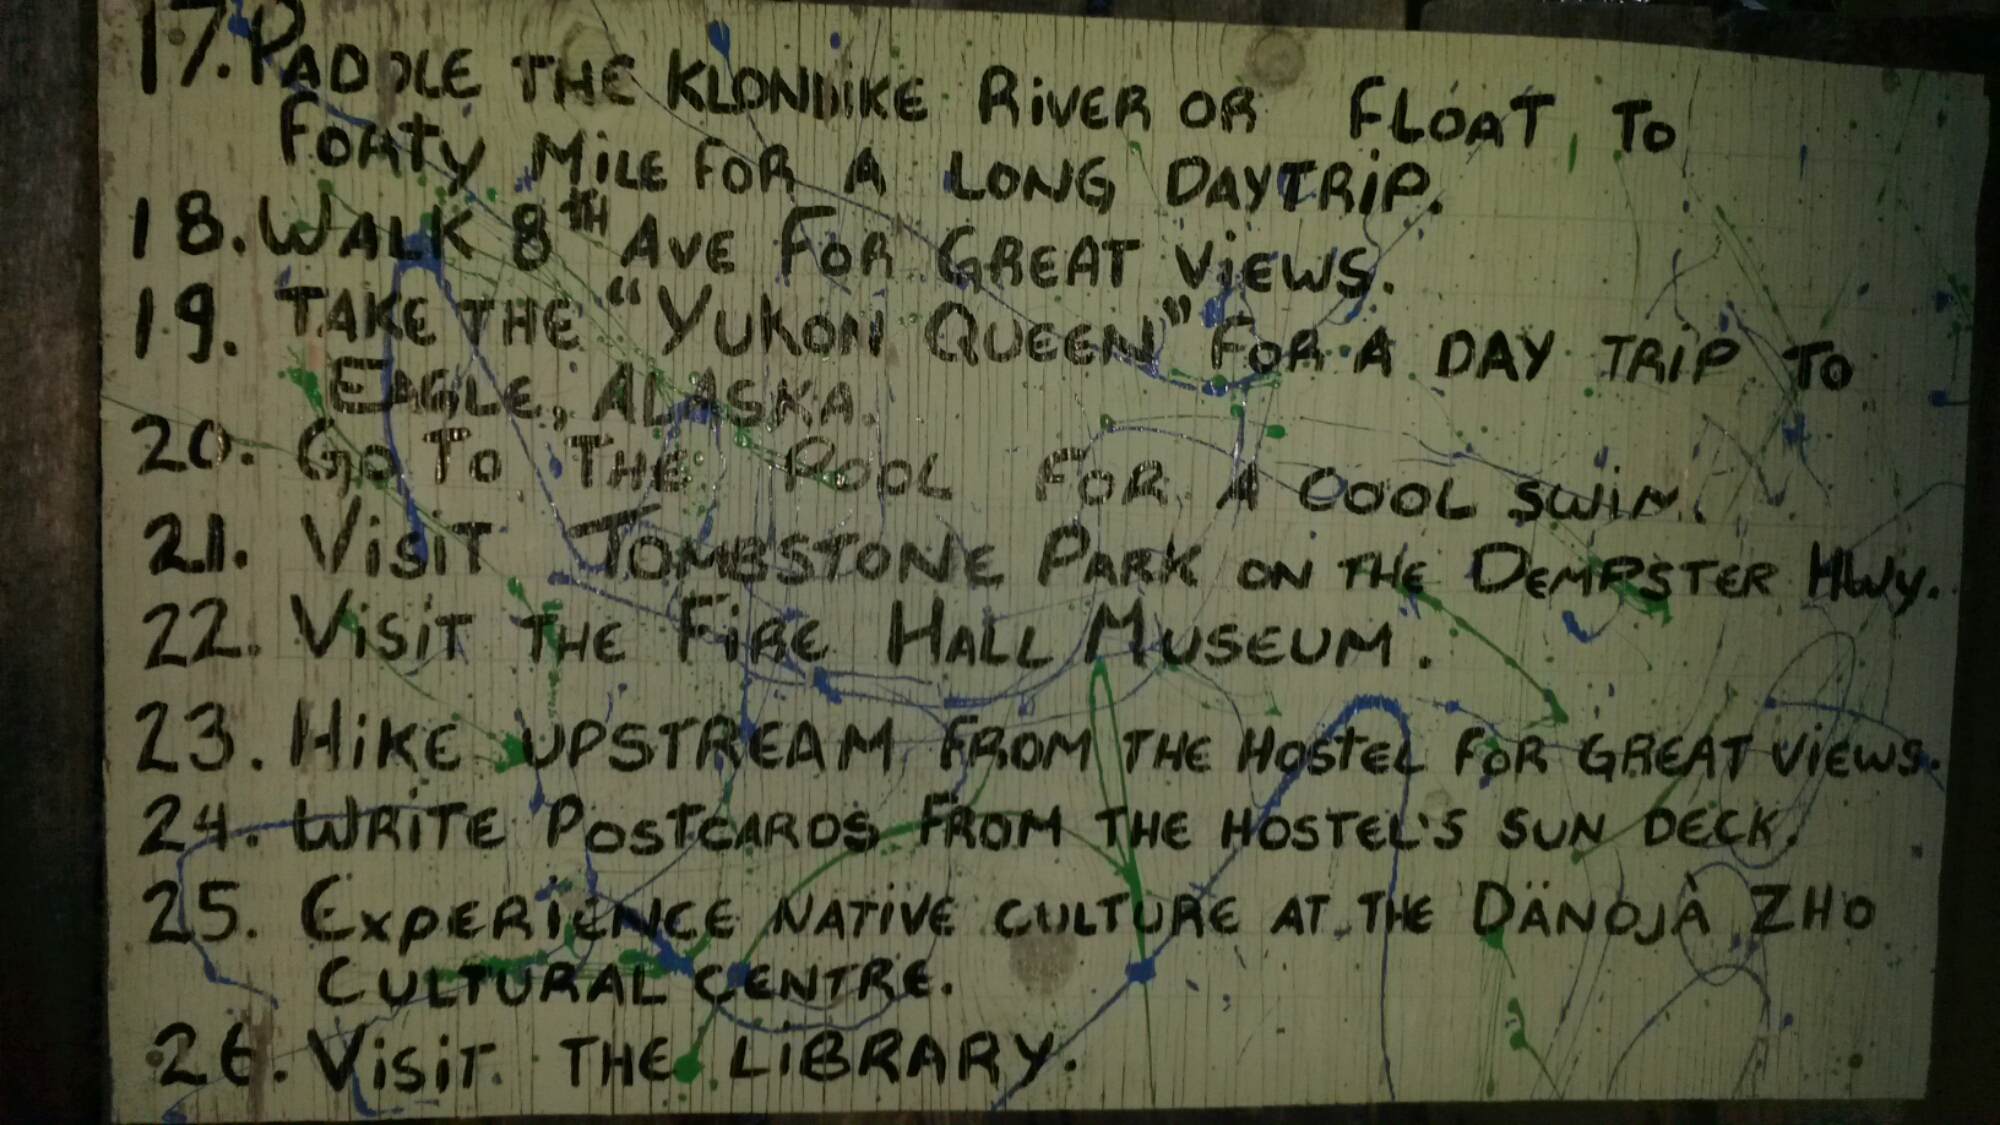 17. PADDLE THE KLONDIKE RIVER OR FLOAT TO
FORTY MILE FOR A LONG DAYTRIP.
18. WALK 8TH AVE FOR GREAT VIEWS.
19. TAKE THE "YUKON QUEEN" FOR A DAY TRIP TO
EAGLE, ALASKA.
20. GO TO THE POOL FOR A COOL SWIM.
21. VISIT TOMBSTONE PARK ON THE DEMPSTER HWY.
22. VISIT THE FIRE HALL MUSEUM.
23. HIKE UPSTREAM FROM THE HOSTEL FOR GREAT VIEWS.
24. WRITE POSTCARDS FROM THE HOSTEL'S SUN DECK.
25. EXPERIENCE NATIVE CULTURE AT THE DÄNOJÀ ZHO
CULTURAL CENTRE.
26. VISIT THE LIBRARY.